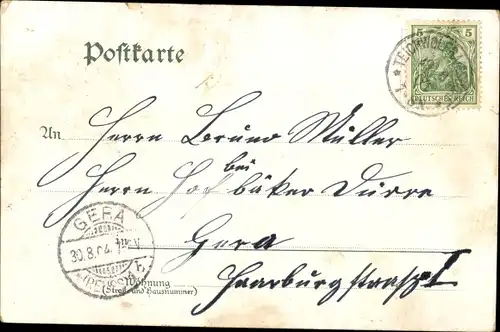 Postkarte
5 5
DEUTSCHES REICH
An
Herrn Bruno Müller
bei
Herrn Hofbäker Dürre
Gera
GERA
30.8.04.
(REUSS)
Wohnung
(Straße und Hausnummer)
Saarburgstraße I